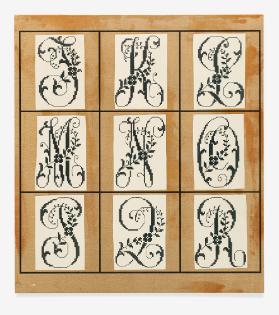 J K L
M N O
P Q R